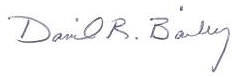 David R. Bailey